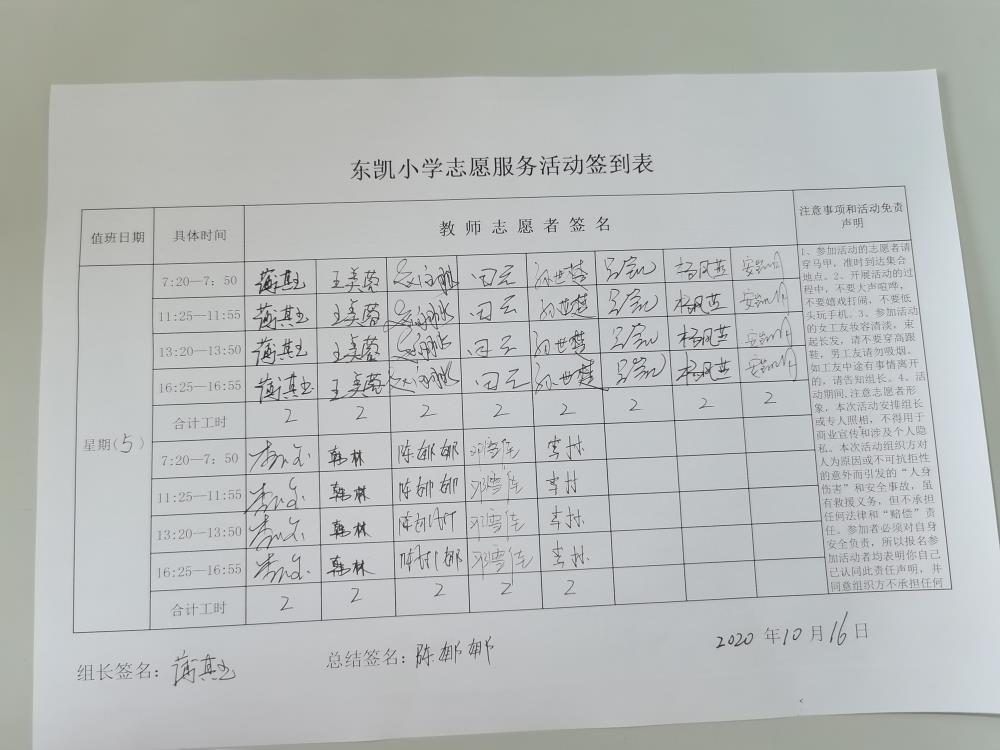 东凯小学志愿服务活动签到表
值班日期 具体时间 教师志愿者签名 注意事项和活动免责声明
7:20—7：50 王美蓉 田云 孙世楚 吕凯 杨凤英
11:25—11:55 王美蓉 田云 孙世楚 吕凯 杨凤英
13:20—13:50 王美蓉 田云 孙世楚 吕凯 杨凤英
16:25—16:55 王美蓉 田云 孙世楚 吕凯 杨凤英
合计工时 2 2 2 2 2 2 2 2
星期(5)
7:20—7：50 韩林 陈郁郁 邓雪佳 李林
11:25—11:55 韩林 陈郁郁 邓雪佳 李林
13:20—13:50 韩林 邓雪佳 李林
16:25—16:55 韩林 邓雪佳 李林
合计工时 2 2 2 2 2
1、参加活动的志愿者请
穿马甲，准时到达集合
地点。2、开展活动的过
程中，不要大声喧哗，
不要嬉戏打闹，不要低
头玩手机。3、参加活动
的女工友妆容清淡，束
起长发，请不要穿高跟
鞋，男工友请勿吸烟。
如工友中途有事情离开
的，请告知组长。4、活
动期间,注意志愿者形
象，本次活动安排组长
或专人照相，不得用于
商业宣传和涉及个人隐
私。本次活动组织方对
人为原因或不可抗拒性
的意外而引发的“人身
伤害”和安全事故，虽
有救援义务，但不承担
任何法律和“赔偿”责
任。参加者必须对自身
安全负责，所以报名参
加活动者均表明你自己
已认同此责任声明，并
同意组织方不承担任何
组长签名： 总结签名：陈郁郁 2020年10月16日